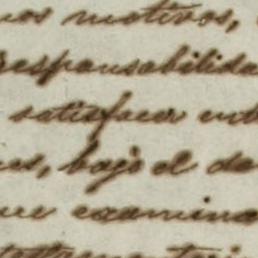 nos motivos,
responsabilida
satisfacer ent
es, bajo el de
ue examina